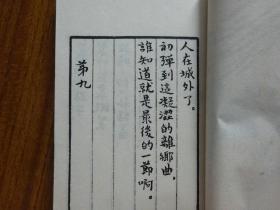 人在城外了。
初彈到這凝澀的離鄉曲。
誰知道就是最後的一節啊。
第九